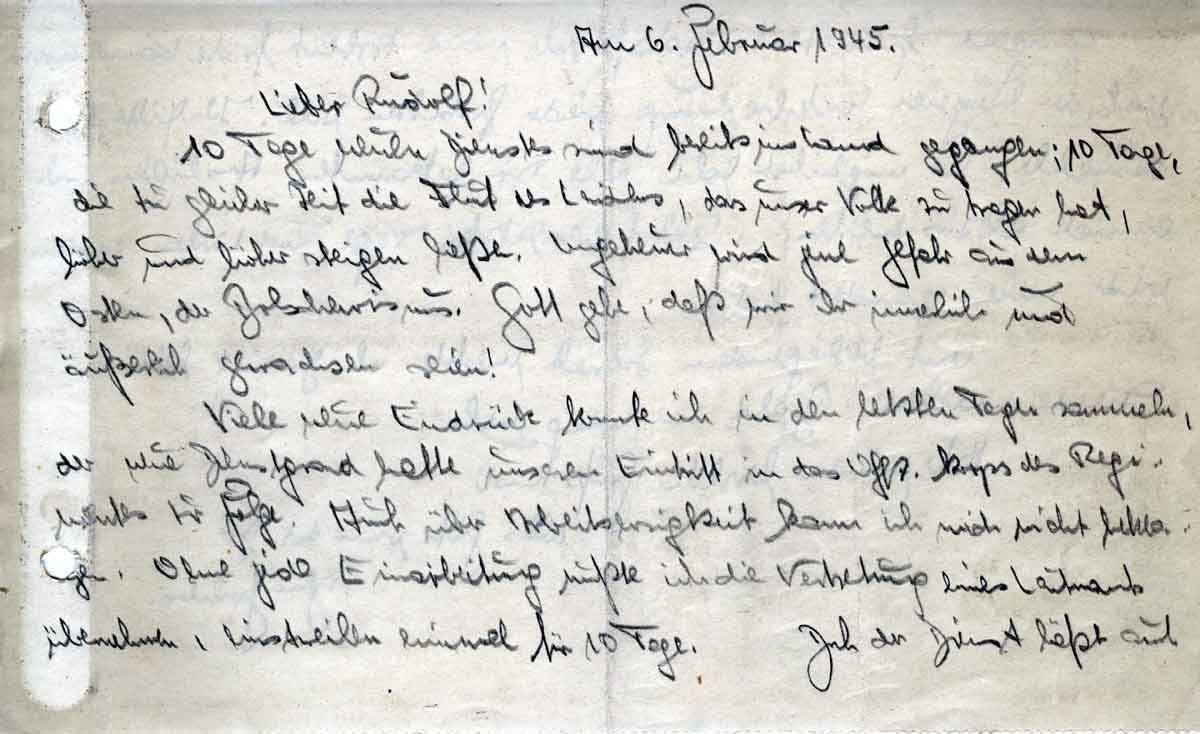 Am 6. Februar 1945.
Lieber Rudolf!
10 Tage neuen Dienstes sind bereits ins Land gegangen; 10 Tage,
die zu gleicher Zeit die Flut des Leides, das unser Volk zu tragen hat,
höher und höher steigen ließen. Ungeheuer sind jene Gefahr aus dem
Osten, der Bolschewismus. Gott gebe, daß wir ihr innerlich und
äußerlich gewachsen seien!
Viele neue Eindrücke konnte ich in den letzten Tagen sammeln,
der neue Dienstgrad hatte unseren Eintritt in das Offz. Korps des Regi-
mentes zur Folge. Auch über Arbeitslosigkeit kann ich mich nicht bekla-
gen. Ohne jede Einarbeitung mußte ich die Vertretung eines Leutnants
übernehmen, einstweilen einmal für 10 Tage. Der Dienst läßt auch